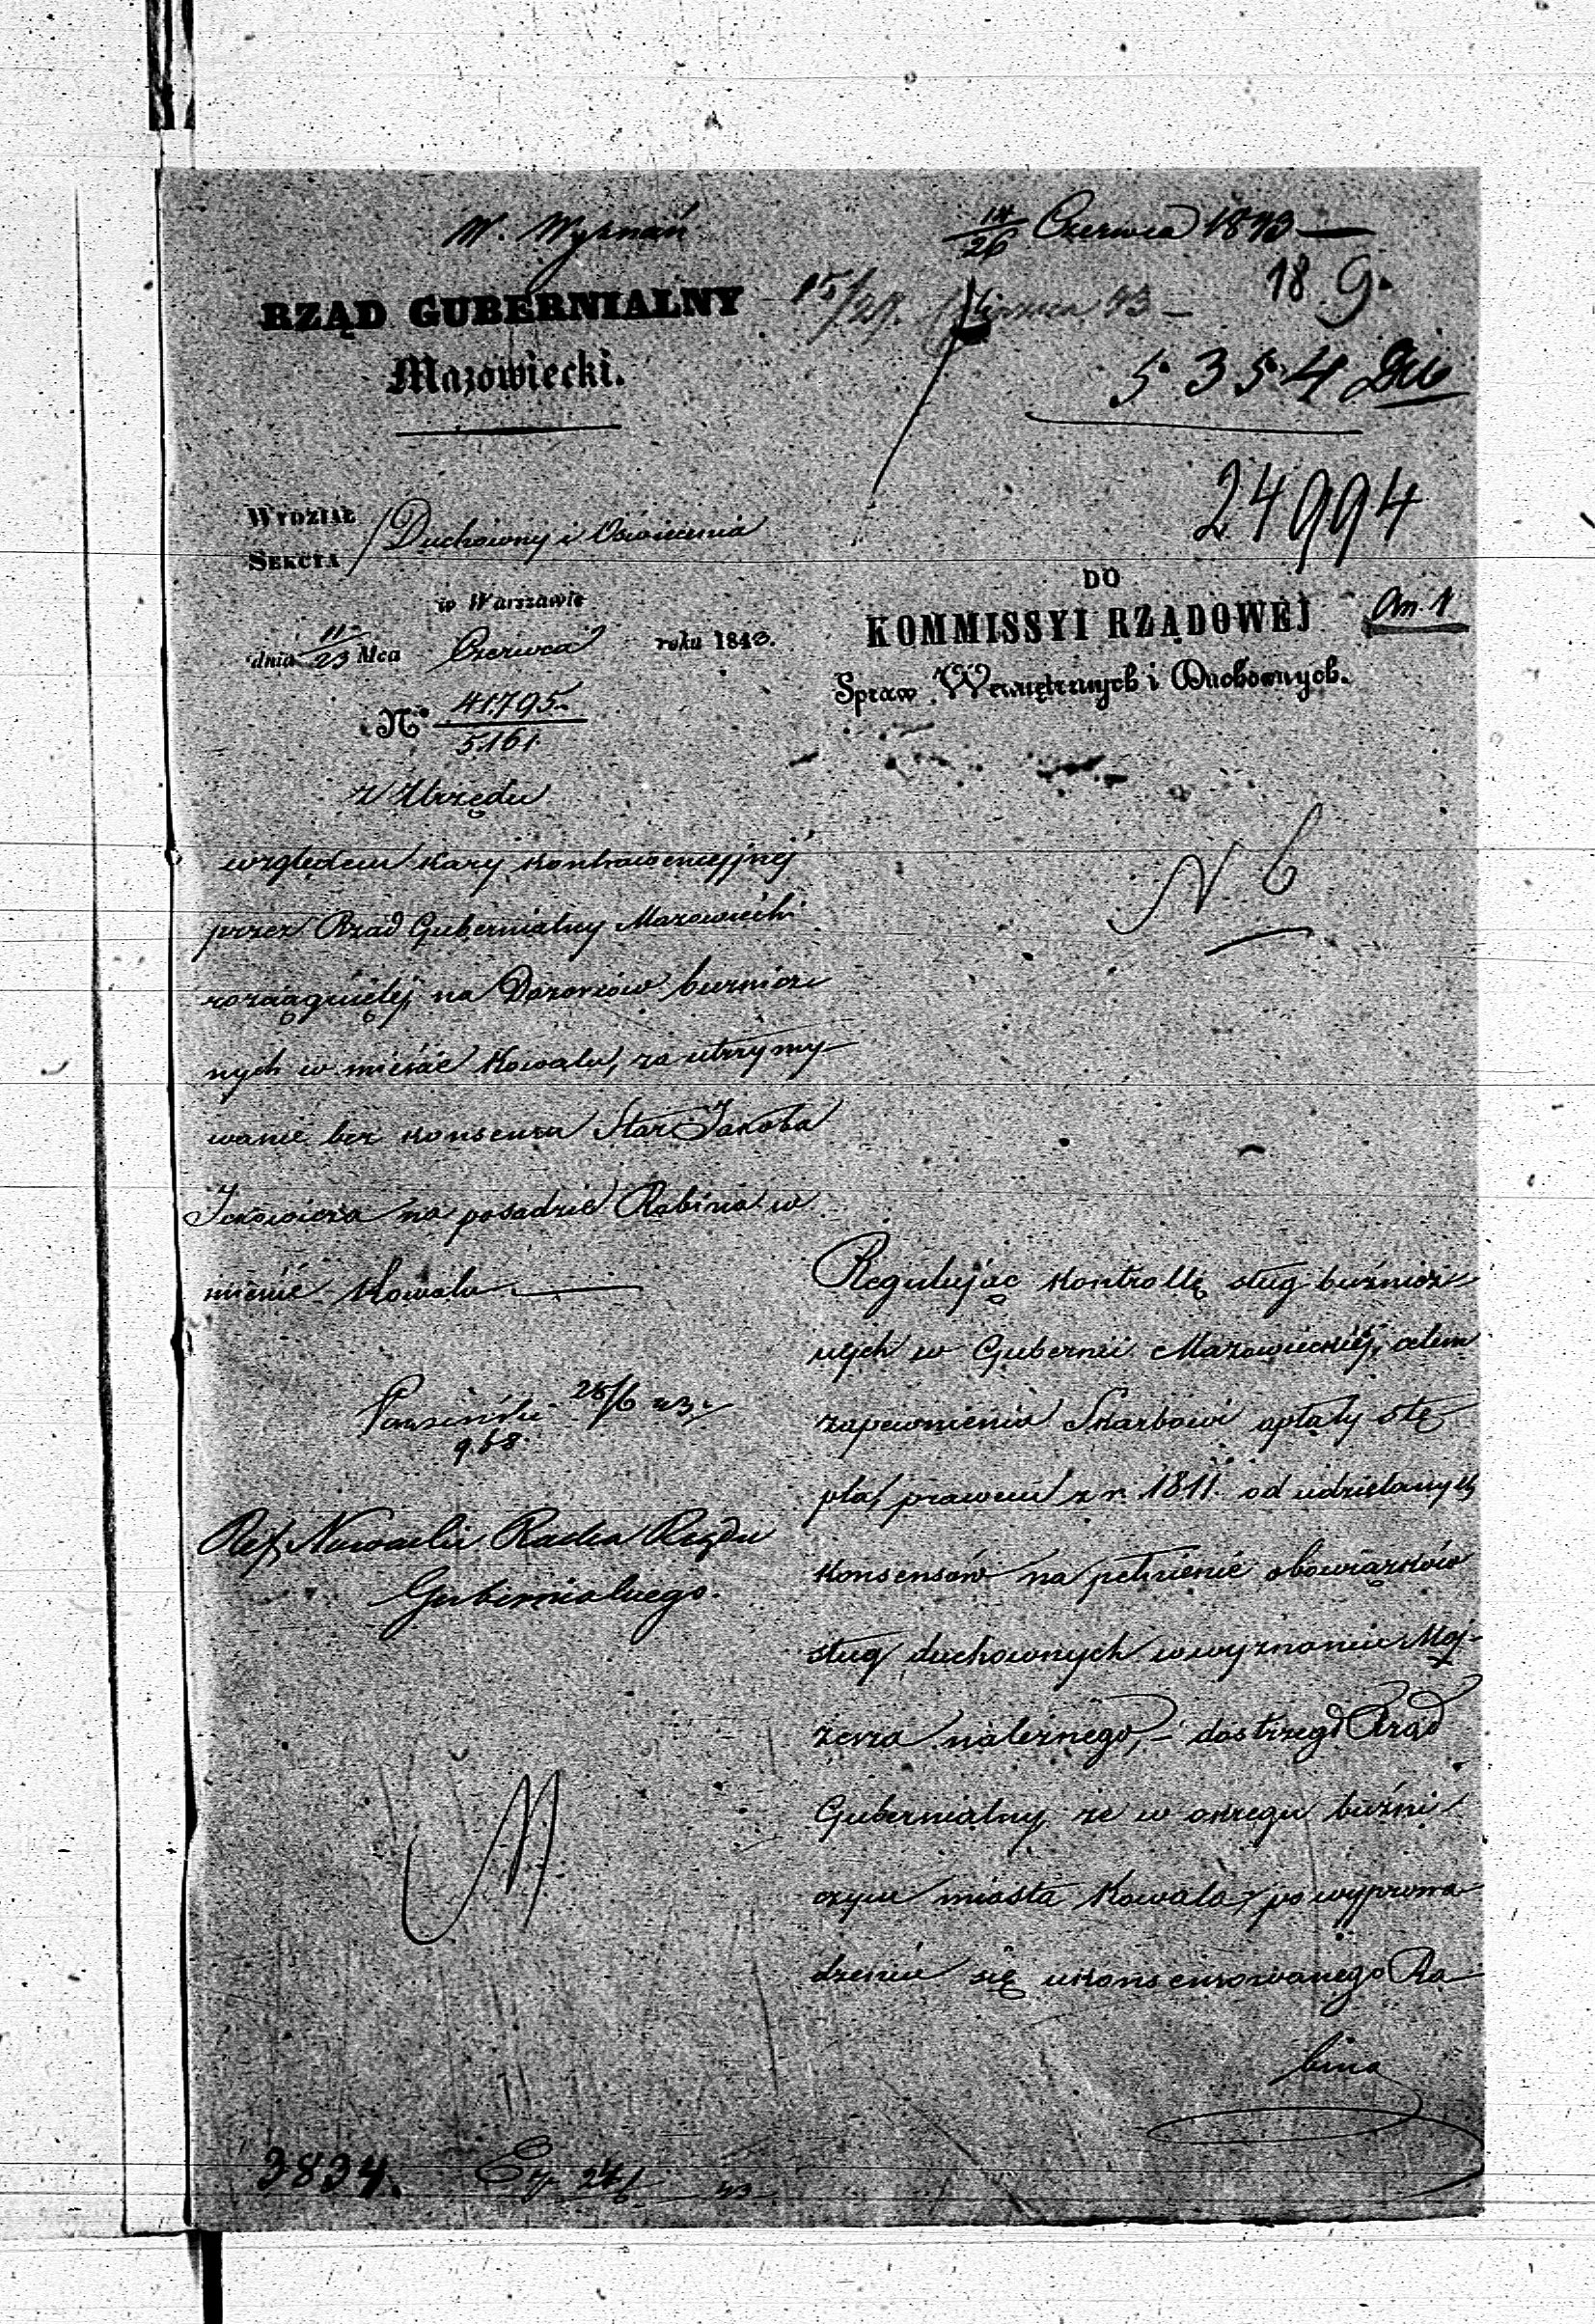 W. Wyznań
14/26 Czerwca 1843
RZĄD GUBERNIALNY
15/27 Czerwca 43
18 9.
Mazowiecki.
5354
24994
WYDZIAŁ
SEKCYA
Duchowny i Oświecenia
w Warszawie
dnia 11/23 Mca Czerwca roku 1843.
No 41795.
5161.
DO
KOMMISSYI RZĄDOWEJ
An. 1
Spraw Wewnętrznych i Duchownych.
z Urzędu
N 6
względem kary kontrawencyjnej
przez Rząd Gubernialny Mazowiecki
rozciągniętéj na Dozorców bużnicz
nych w mieście Kowalu, za utrzymy
wanie bez konsensu Star: Jakoba
Ickowicza na posadzie Rabina w
mieście Kowalu
28/6 43
968.
Ref. Nowacki Radca Rządu
Gubernialnego.
Regulując kontrollę sług buźnicz
nych w Gubernii Mazowieckiéj, celem
zapewnienia Skarbowi opłaty stę
pla, prawem z r. 1811. od udzielanych
konsensów na pełnienie obowiązków
sług duchownych w wyznaniu Moj-
żesza należnego, - dostrzegł Rząd
Gubernialny że w okręgu buźni
czym miasta Kowala, po wyprowa
dzeniu się ukonsensowanego Ra
bina
3834.